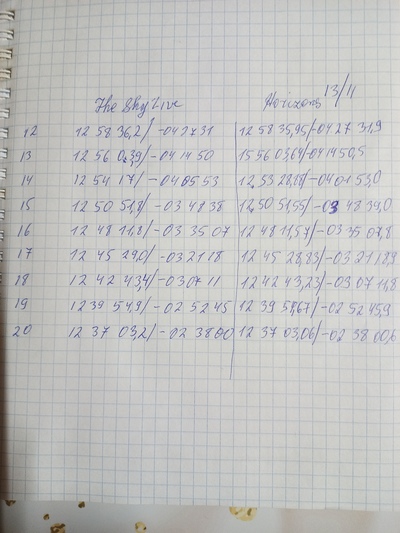 The Sky Live Horizons 13/11
12 12 58 36,2/-04 27 31 12 58 35,95/-04 27 31,9
13 12 56 0,39/-04 14 50 15 56 03,64/-04 14 50,5
14 12 54 17/-04 05 53 12,53 28,18/-04 01 53,0
15 12 50 51,8/-03 48 38 12,50 51,55/-03 48 39,0
16 12 48 11,8/-03 35 07 12 48 11,57/-03 35 07,8
17 12 45 29,0/-03 21 18 12 45 28,83/-03 21 18,9
18 12 42 43,4/-03 07 11 12 42 43,23/-03 07 11,8
19 12 39 54,9/-02 52 45 12 39 54,67/-02 52 45,9
20 12 37 03,2/-02 38 00 12 37 03,06/-02 38 00,6